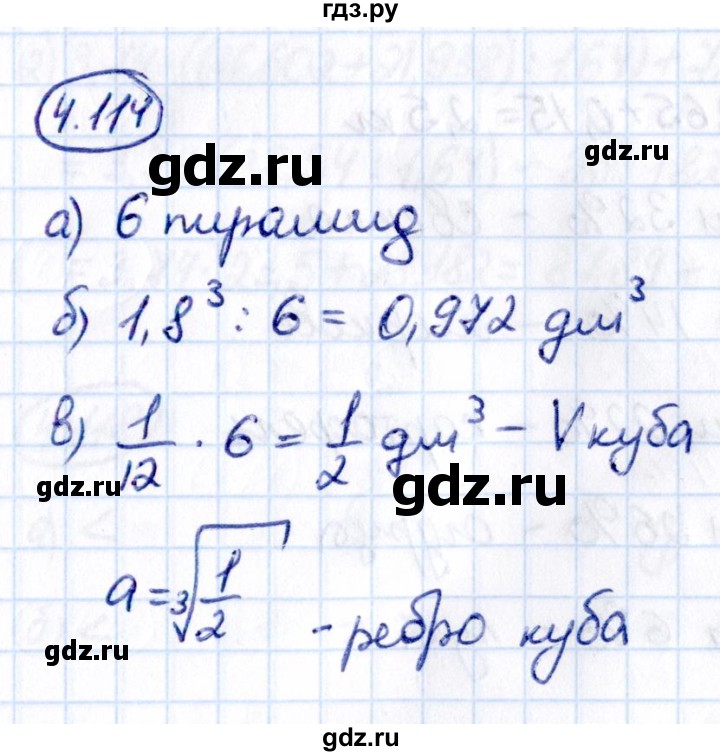 гдз.ру
4.114
gdz.ru
а) 6 пирамид
б) 1,8³ : 6 = 0,972 дм³
в) 1/12 · 6 = 1/2 дм³ – V куба
gdz.ru
gdz.ru
a = ³√1/2 – ребро куба
gdz.ru
gdz.ru